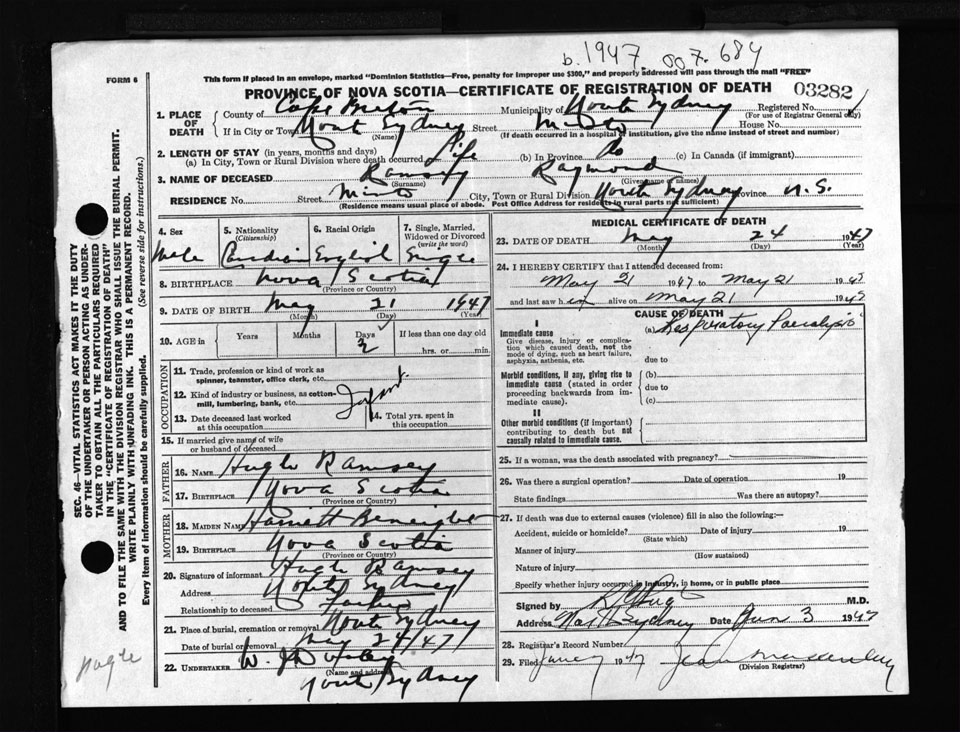 b. 1947. 007. 684
FORM 6
This form if placed in an envelope, marked "Dominion Statistics—Free, penalty for improper use $300," and properly addressed will pass through the mail "FREE"
PROVINCE OF NOVA SCOTIA—CERTIFICATE OF REGISTRATION OF DEATH 03282
1. PLACE OF DEATH
County of Cape Breton Municipality of North Sydney Registered No.
(For use of Registrar General only)
If in City or Town North Sydney Street Minto House No.
(Name) (If death occurred in a hospital or institution, give the name instead of street and number)
2. LENGTH OF STAY (in years, months and days)
(a) In City, Town or Rural Division where death occurred Life (b) In Province Do (c) In Canada (if immigrant)
3. NAME OF DECEASED Ramsey Raymond
(Surname) (Given name or names)
RESIDENCE No. Street Minto City, Town or Rural Division North Sydney Province N.S.
(Residence means usual place of abode. Post Office Address for residents in rural parts not sufficient)
4. Sex 5. Nationality (Citizenship) 6. Racial Origin 7. Single, Married, Widowed or Divorced (write the word)
Male Canadian English Single
8. BIRTHPLACE Nova Scotia
(Province or Country)
9. DATE OF BIRTH May 21 1947
(Month) (Day) (Year)
10. AGE in Years Months Days 3 If less than one day old
hrs. or min.
OCCUPATION
11. Trade, profession or kind of work as spinner, teamster, office clerk, etc.
12. Kind of industry or business, as cotton-mill, lumbering, bank, etc. Infant
13. Date deceased last worked at this occupation 14. Total yrs. spent in this occupation
15. If married give name of wife or husband of deceased
FATHER
16. NAME Hugh Ramsey
17. BIRTHPLACE Nova Scotia
(Province or Country)
MOTHER
18. MAIDEN NAME Harriett
19. BIRTHPLACE Nova Scotia
(Province or Country)
20. Signature of informant Hugh Ramsey
Address North Sydney
Relationship to deceased Father
21. Place of burial, cremation or removal North Sydney
Date of burial or removal May 24/47
22. UNDERTAKER W. J.
(Name and address)
North Sydney
MEDICAL CERTIFICATE OF DEATH
23. DATE OF DEATH May 24 1947
(Month) (Day) (Year)
24. I HEREBY CERTIFY that I attended deceased from:
May 21 1947 to May 21 1947
and last saw him alive on May 21 1947
CAUSE OF DEATH
I
Immediate cause (a) Respiratory Paralysis
Give disease, injury or complication which caused death, not the mode of dying, such as heart failure, asphyxia, asthenia, etc.
due to
Morbid conditions, if any, giving rise to immediate cause (stated in order proceeding backwards from immediate cause).
(b)
due to
(c)
II
Other morbid conditions (if important) contributing to death but not causally related to immediate cause.
25. If a woman, was the death associated with pregnancy?
26. Was there a surgical operation? Date of operation 19
State findings Was there an autopsy?
27. If death was due to external causes (violence) fill in also the following:—
Accident, suicide or homicide? Date of injury 19
(State which)
Manner of injury
(How sustained)
Nature of injury
Specify whether injury occurred in industry, in home, or in public place
Signed by M.D.
Address North Sydney Date Jun 3 1947
28. Registrar's Record Number
29. Filed June 7 1947 Jean
(Division Registrar)
SEC. 46—VITAL STATISTICS ACT MAKES IT THE DUTY
OF THE UNDERTAKER OR PERSON ACTING AS UNDER-
TAKER TO OBTAIN ALL THE PARTICULARS REQUIRED
IN THE "CERTIFICATE OF REGISTRATION OF DEATH"
AND TO FILE THE SAME WITH THE DIVISION REGISTRAR WHO SHALL ISSUE THE BURIAL PERMIT.
WRITE PLAINLY WITH UNFADING INK. THIS IS A PERMANENT RECORD.
Every item of information should be carefully supplied. (See reverse side for instructions.)